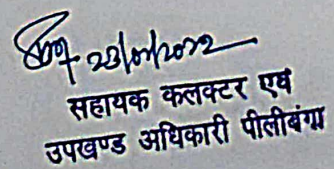 23/01/2022
सहायक कलक्टर एवं
उपखण्ड अधिकारी पीलीबंगा